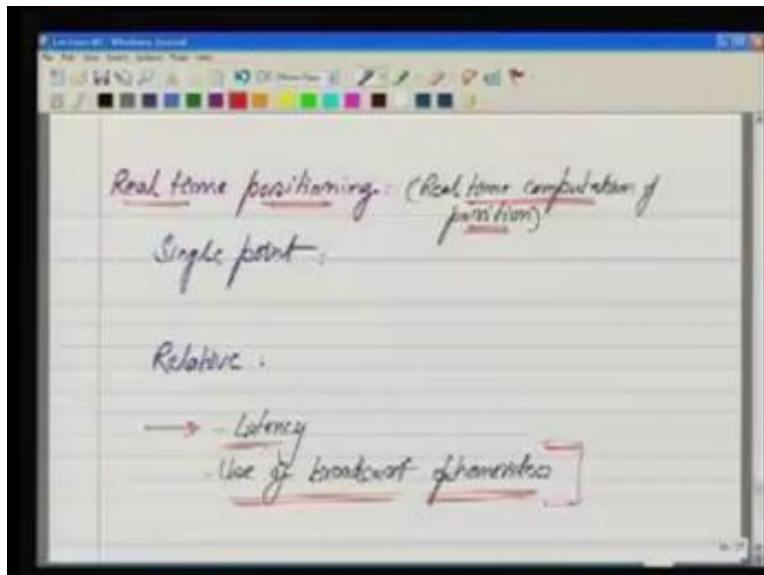 Real time positioning: (Real time computation of
position)
Single point:
Relative:
- Latency
- Use of broadcast ephemerides